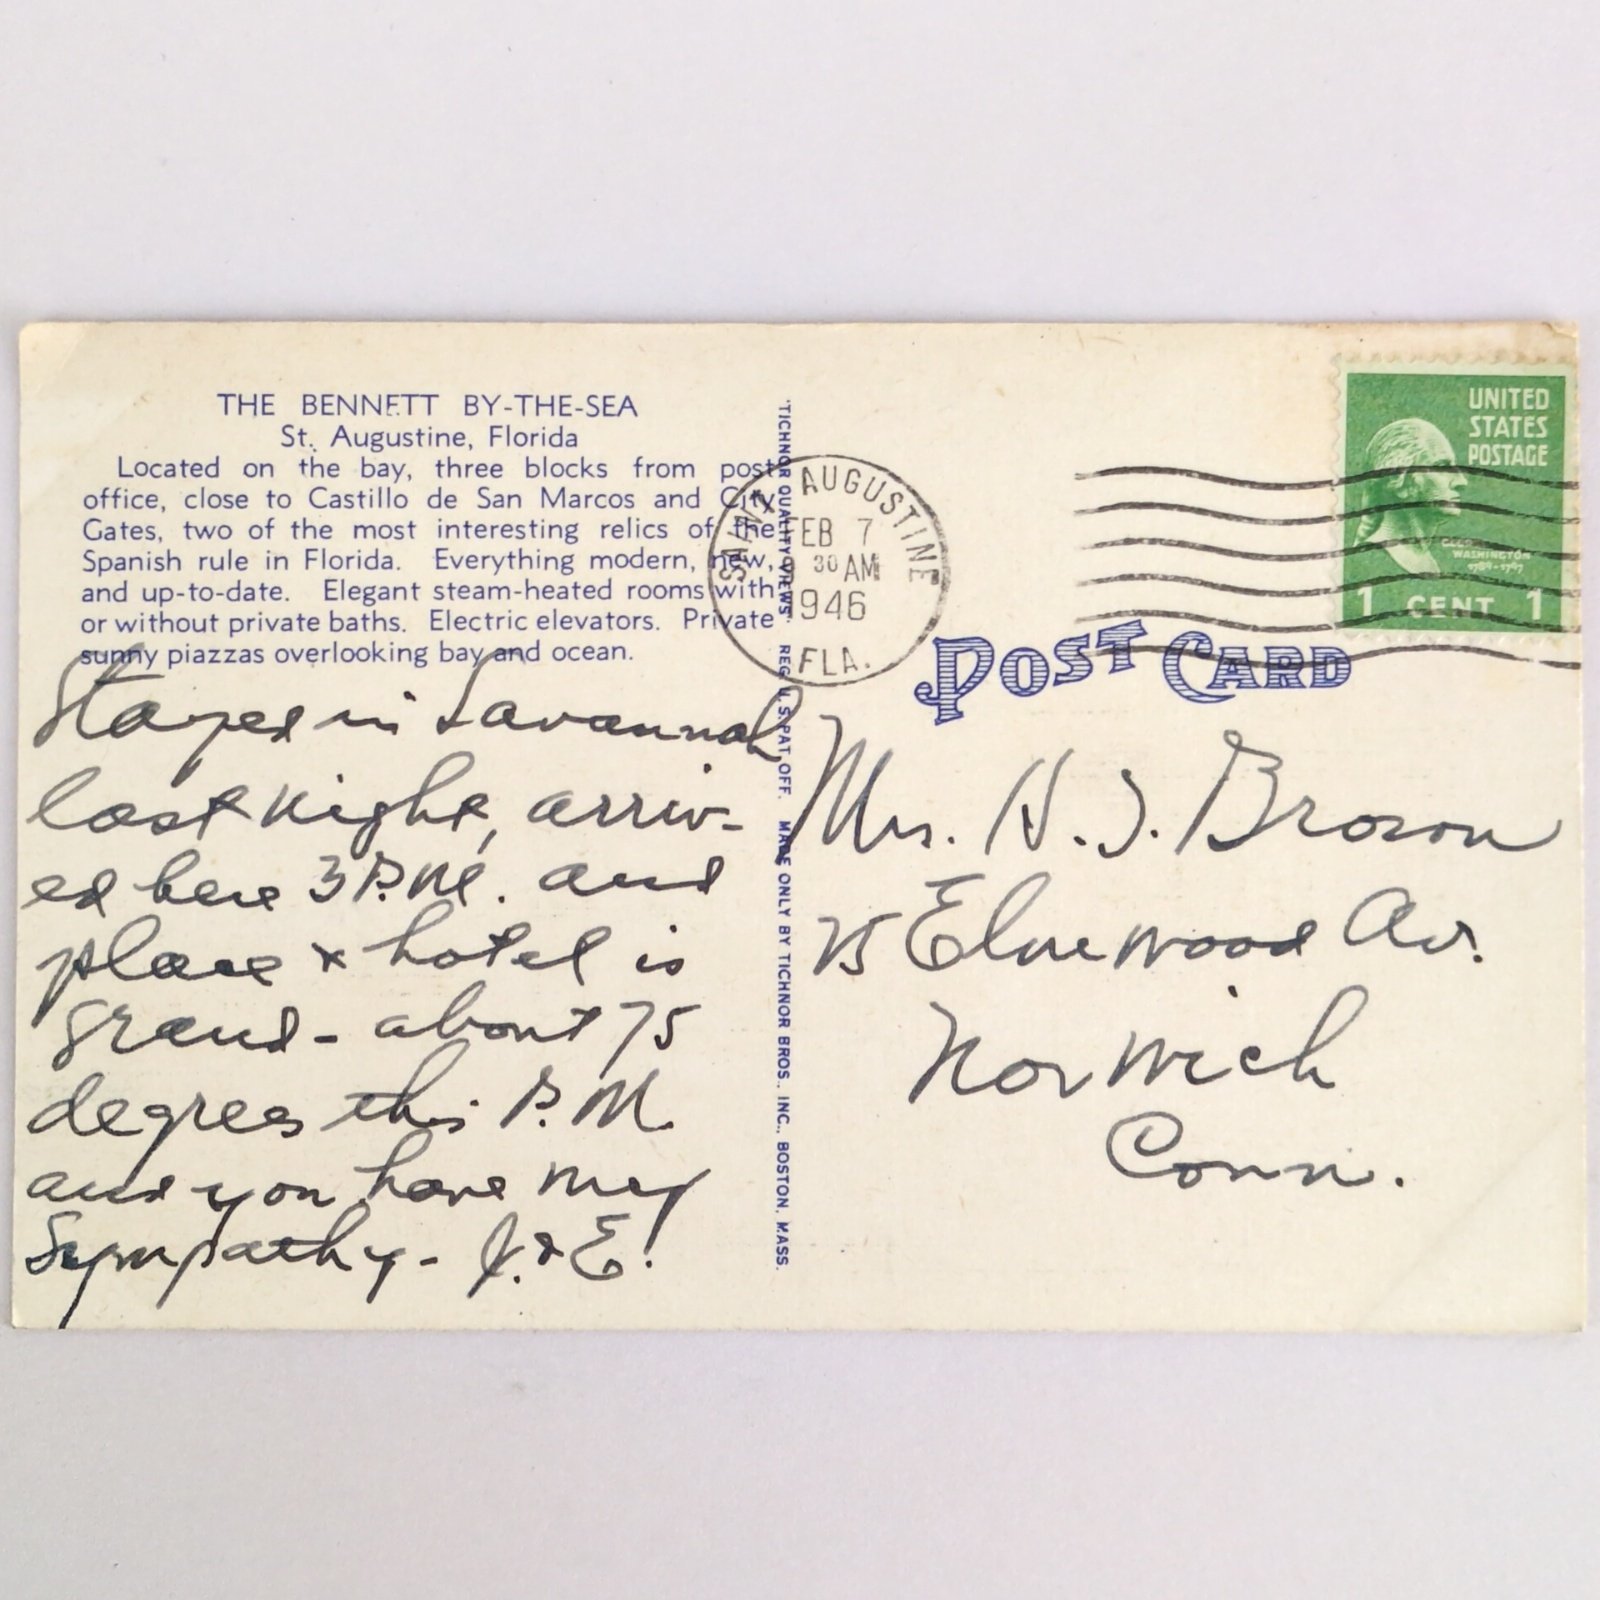 THE BENNETT BY-THE-SEA
St. Augustine, Florida
Located on the bay, three blocks from post
office, close to Castillo de San Marcos and City
Gates, two of the most interesting relics of the
Spanish rule in Florida. Everything modern, new,
and up-to-date. Elegant steam-heated rooms with
or without private baths. Electric elevators. Private
sunny piazzas overlooking bay and ocean.
Stayed in Savannah
last night, arriv-
ed here 3 P.M. and
place & hotel is
grand - about 75
degrees this P.M.
and you have my
Sympathy - J. & E.
"TICHNOR QUALITY VIEWS" REG. U. S. PAT. OFF. MADE ONLY BY TICHNOR BROS., INC., BOSTON, MASS.
SAINT AUGUSTINE
FEB 7
30 AM
1946
FLA.
UNITED
STATES
POSTAGE
GEORGE
WASHINGTON
1789-1797
1 CENT 1
POST CARD
Mrs. H. S. Brown
75 Elmwood Av.
Norwich
Conn.